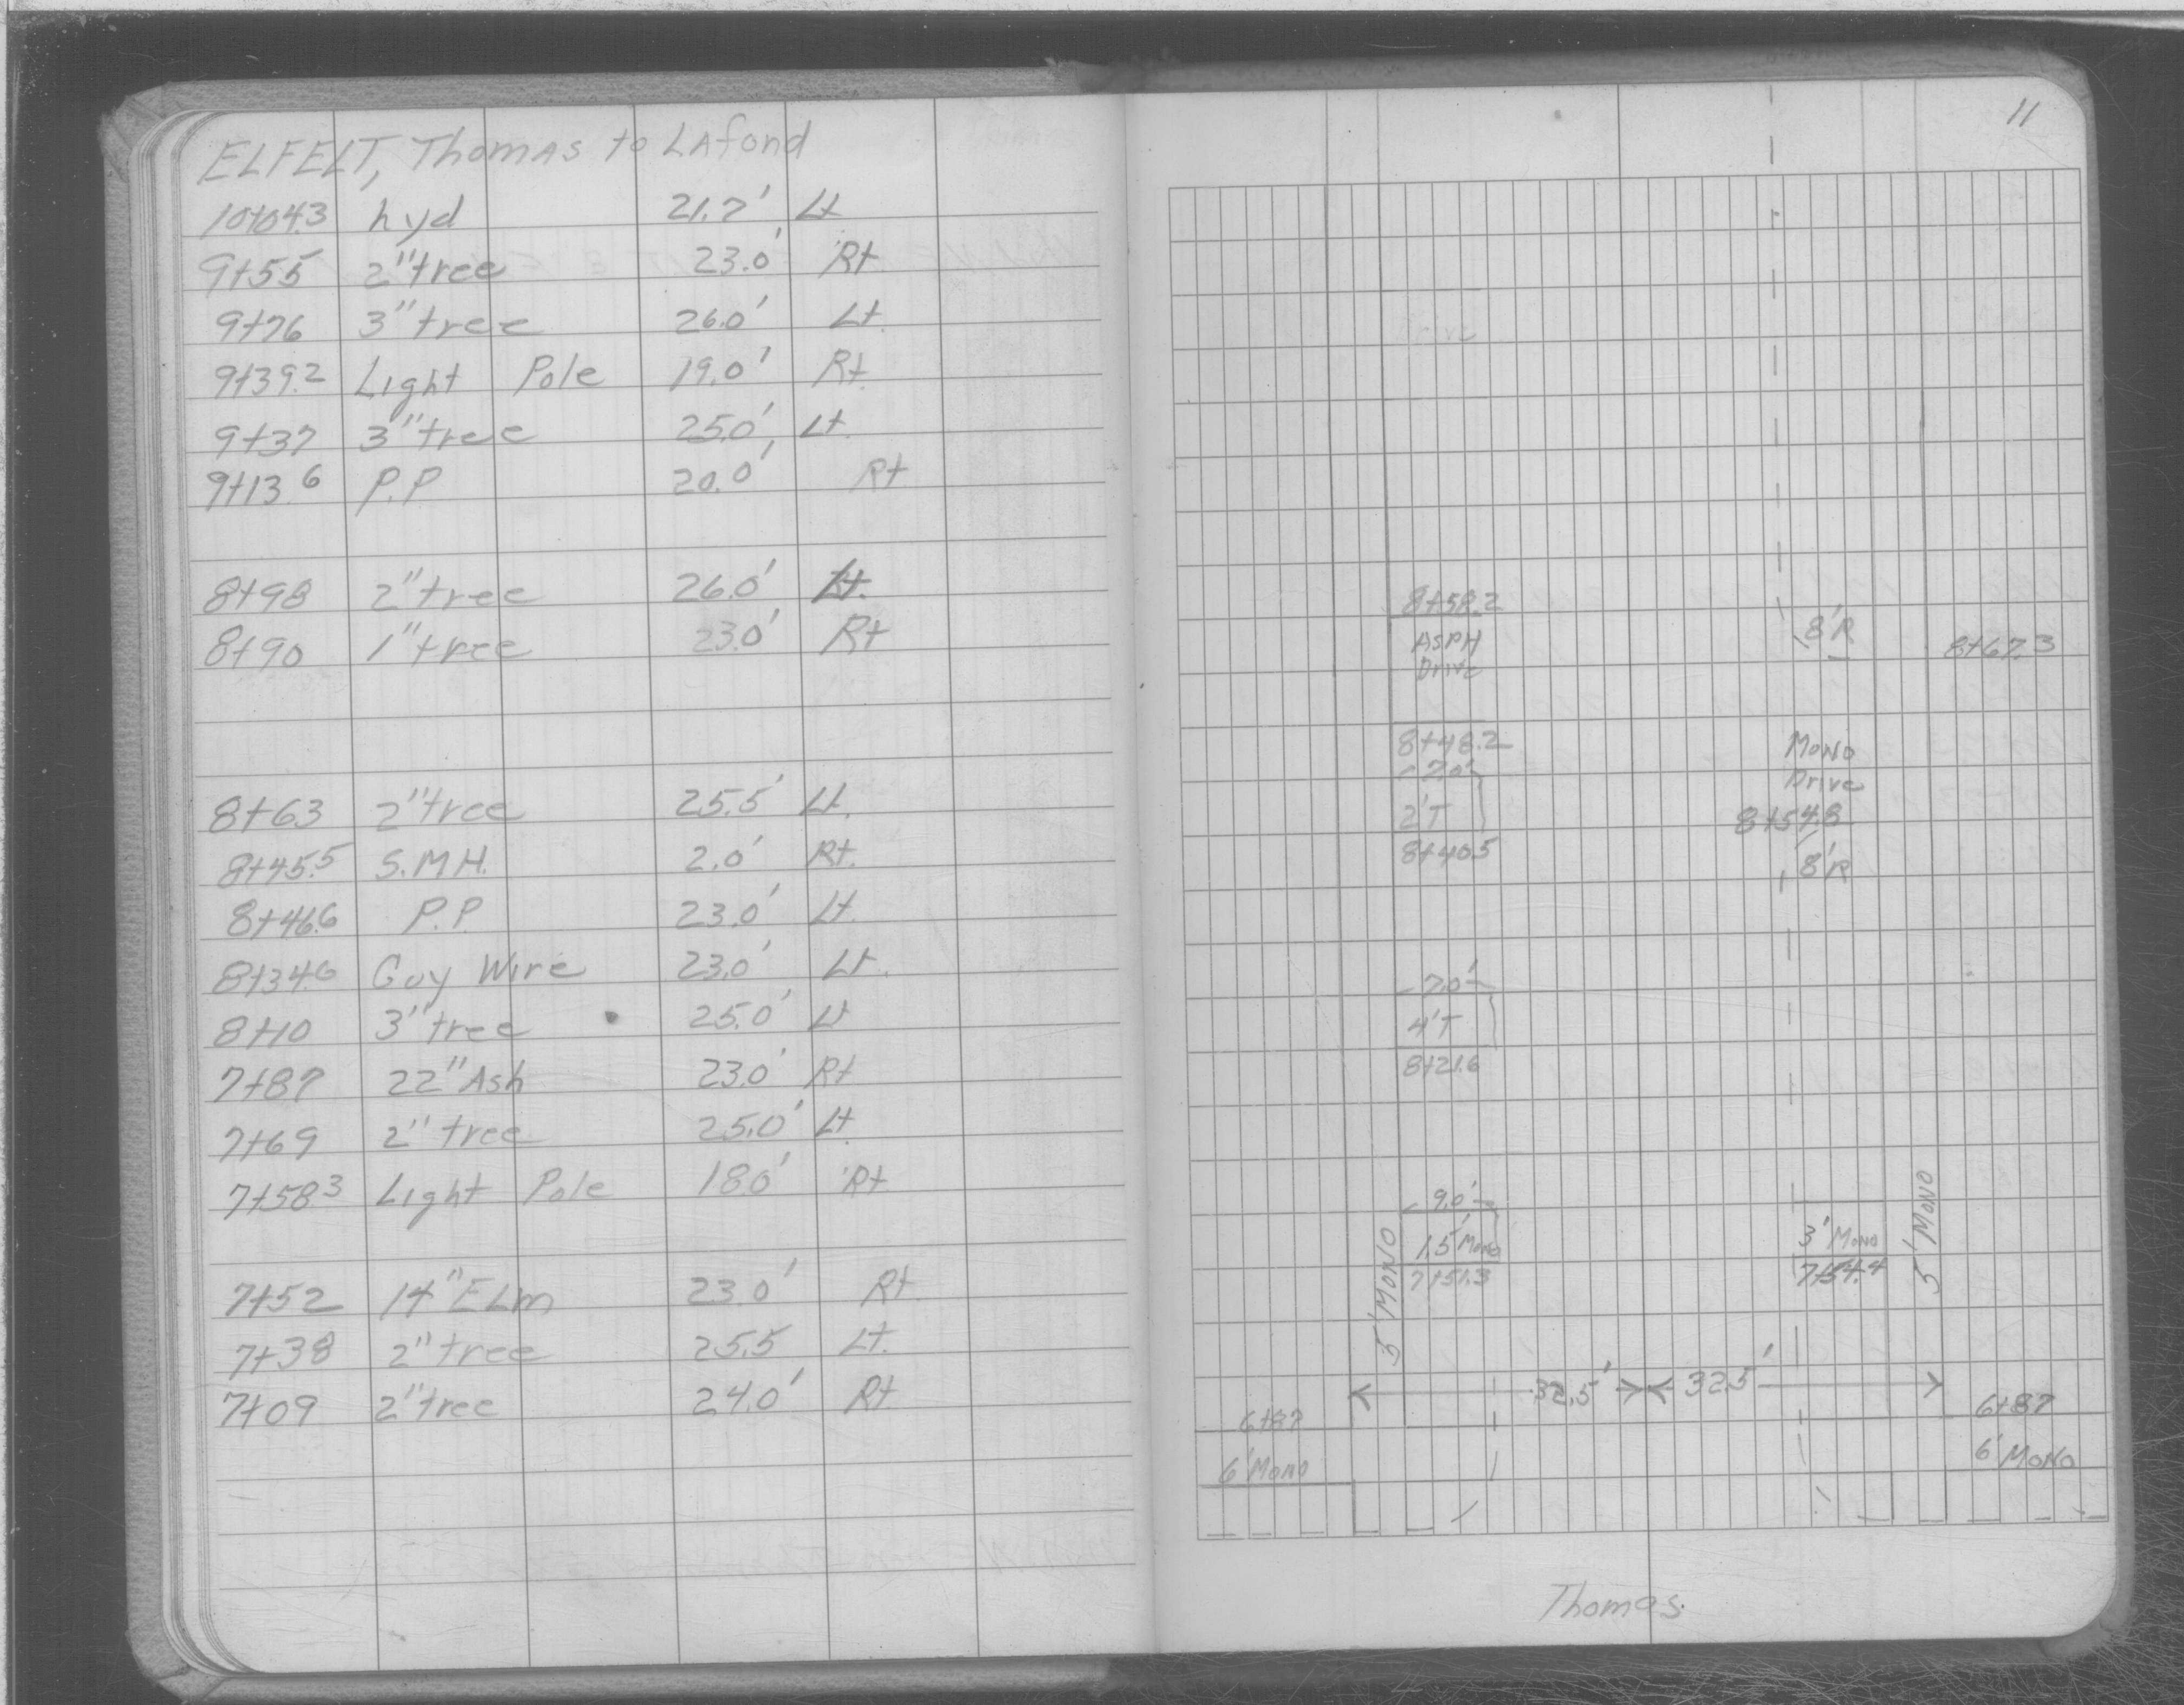 ELFELT, Thomas to LAfond
10+04.3 hyd 21.7' Lt
9+55 2" tree 23.0' Rt
9+76 3" tree 26.0' Lt.
9+39.2 Light Pole 19.0' Rt.
9+37 3" tree 25.0' Lt.
9+13.6 P.P 20.0' Rt
8+98 2" tree 26.0' Lt.
8+90 1" tree 23.0' Rt
8+63 2" tree 25.5' Lt.
8+45.5 S.M.H. 2.0' Rt.
8+46.6 P.P. 23.0' Lt.
8+34.6 Guy Wire 23.0' Lt.
8+10 3" tree 25.0' Lt
7+87 22" Ash 23.0' Rt
7+69 2" tree 25.0' Lt.
7+58.3 Light Pole 18.0' Rt
7+52 14" ELm 23.0' Rt.
7+38 2" tree 25.5 Lt.
7+09 2" tree 24.0' Rt
11
Drive
8+58.2
ASPH
Drive
8'R
8+67.3
8+48.2
7.0'
2'T
8+40.5
MONO
Drive
8+54.8
8'R
7.0'
4'T
8+21.6
9.0'
1.5' Mono
7+51.3
5' MONO
3' MONO
7+54.4
5' MONO
32.5' 32.5'
6+87
6' MONO
6+87
6' MONO
Thomas